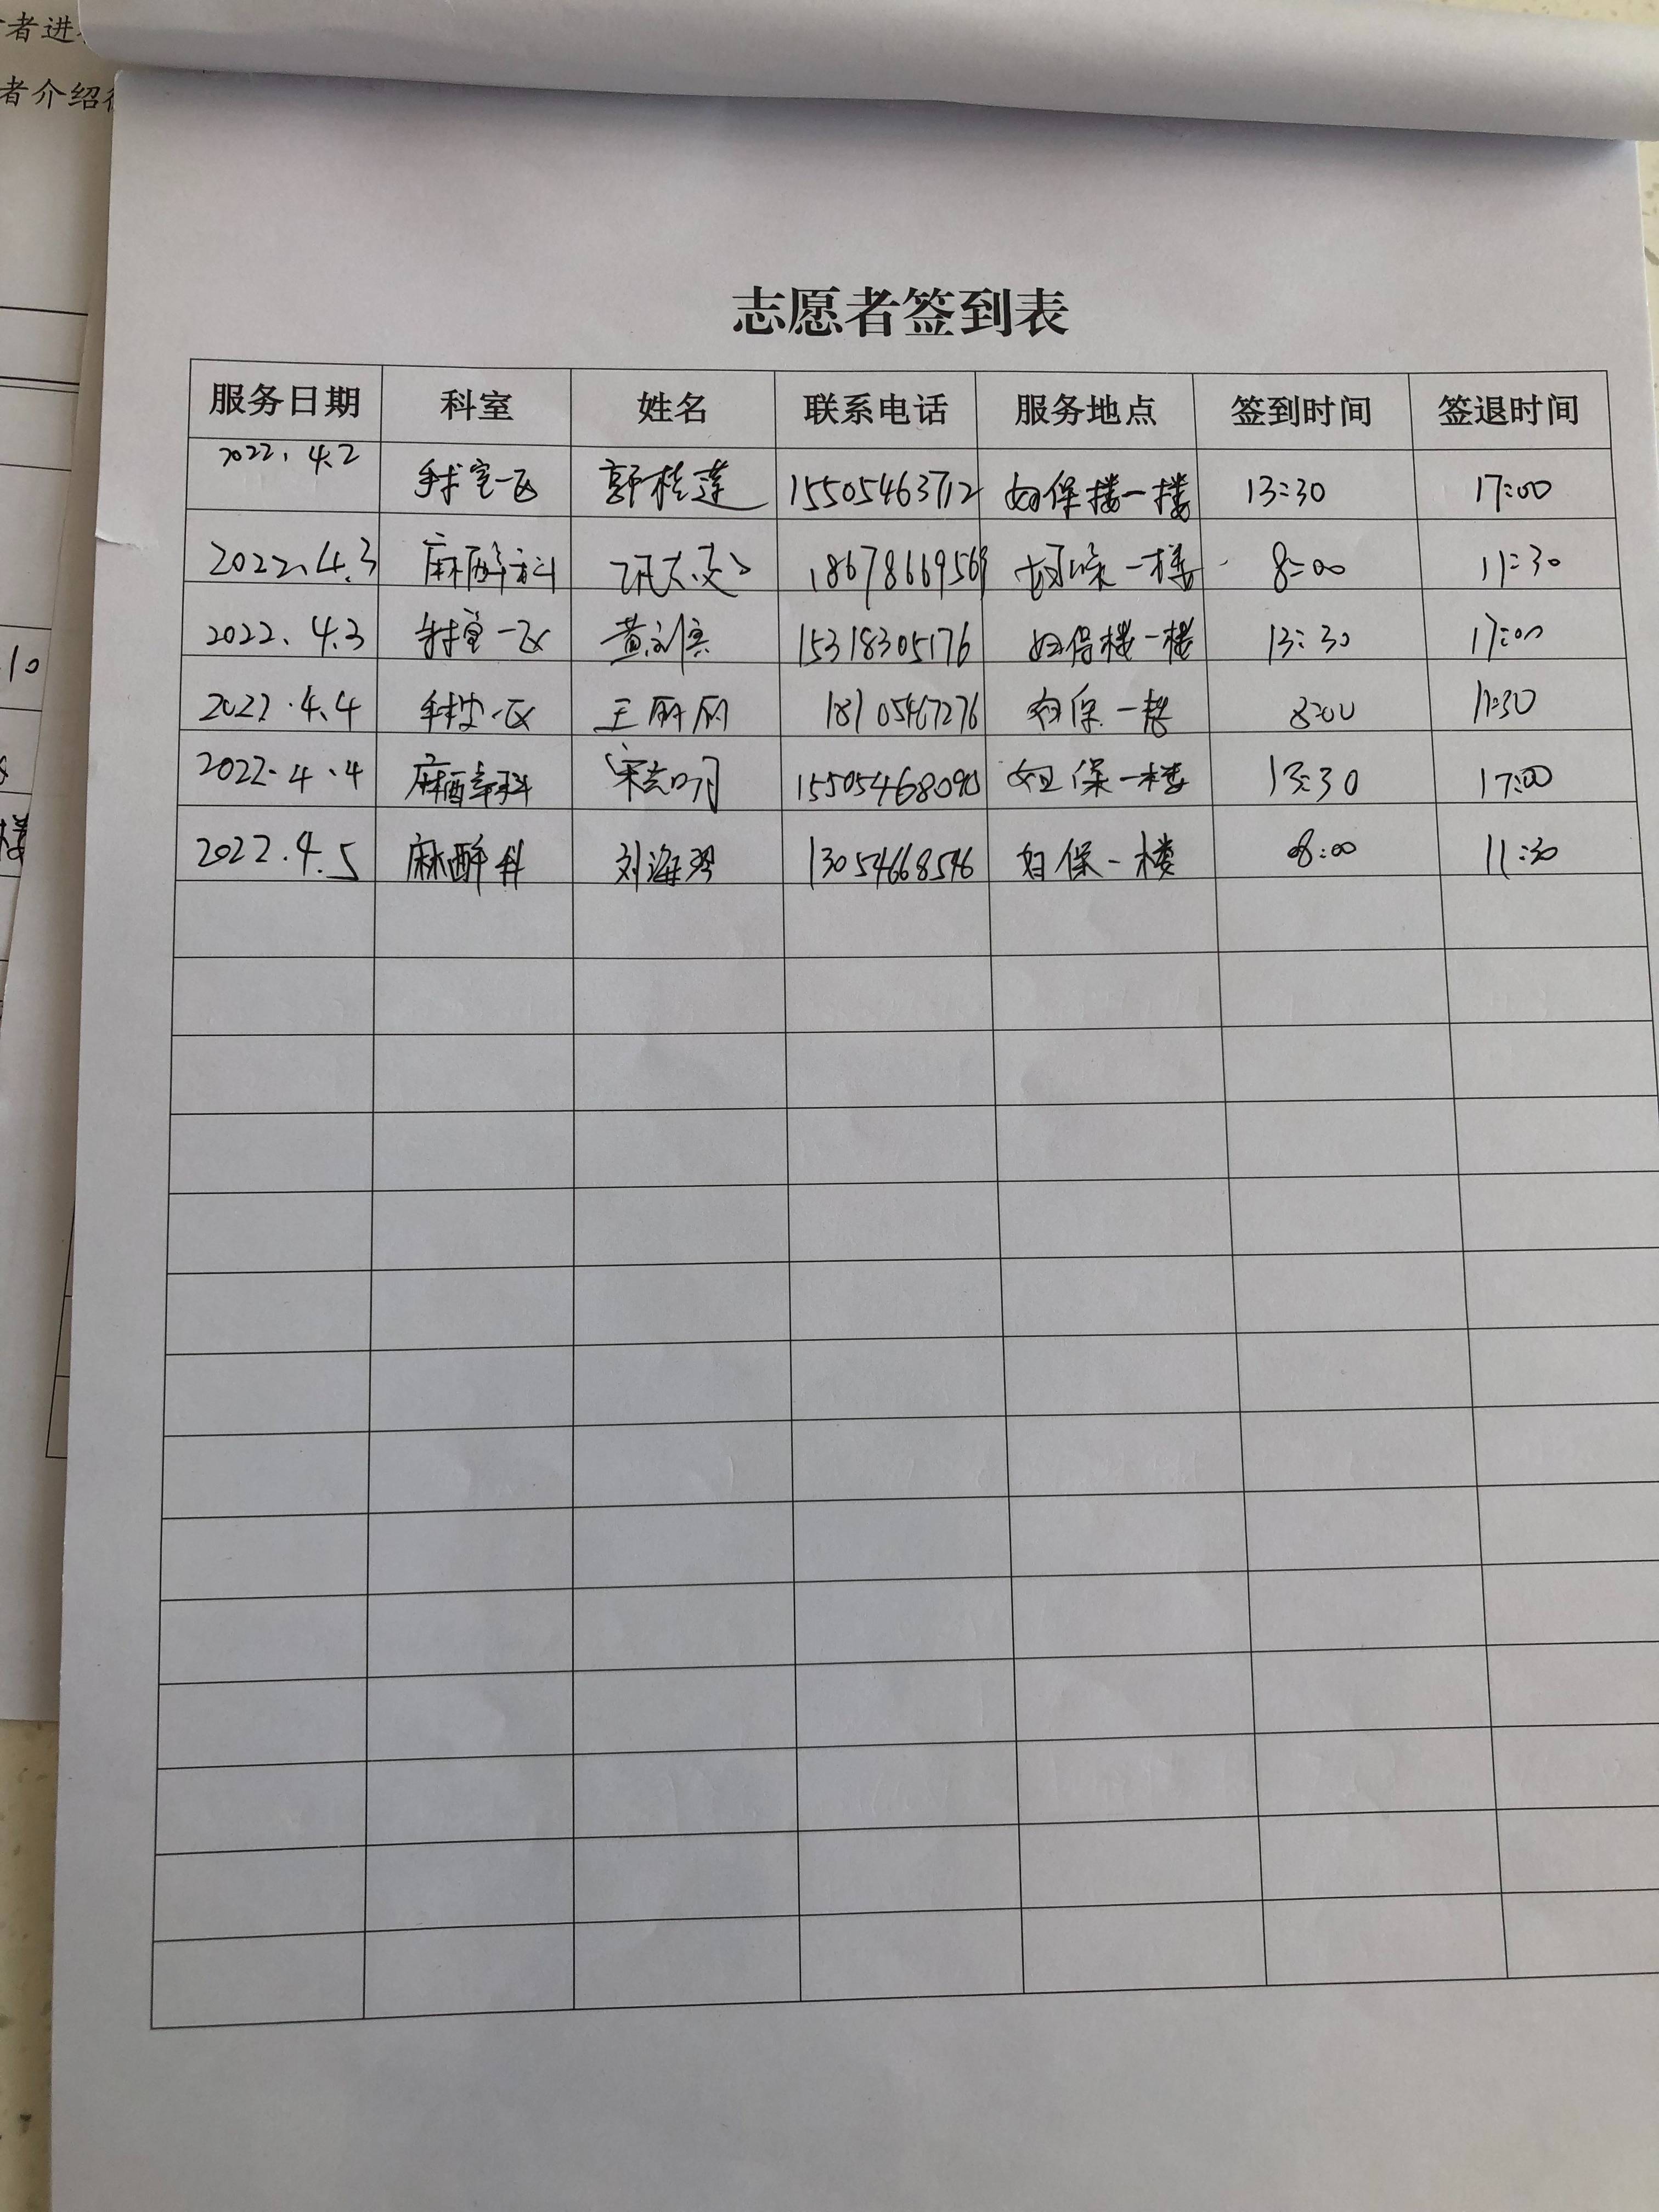 者进
者介绍
志愿者签到表
服务日期 科室 姓名 联系电话 服务地点 签到时间 签退时间
2022.4.2 手术室一区 郭桂莲 15505463712 妇保楼一楼 13:30 17:00
2022.4.3 麻醉科 18678669569 妇保一楼 8:00 11:30
2022.4.3 手术室一区 黄 15318305176 妇保楼一楼 13:30 17:00
2022.4.4 手术室一区 王丽丽 18105467276 妇保一楼 8:00 11:30
2022.4.4 麻醉科 宋 15505468090 妇保一楼 13:30 17:00
2022.4.5 麻醉科 刘海琴 13054668546 妇保一楼 08:00 11:30
10
楼